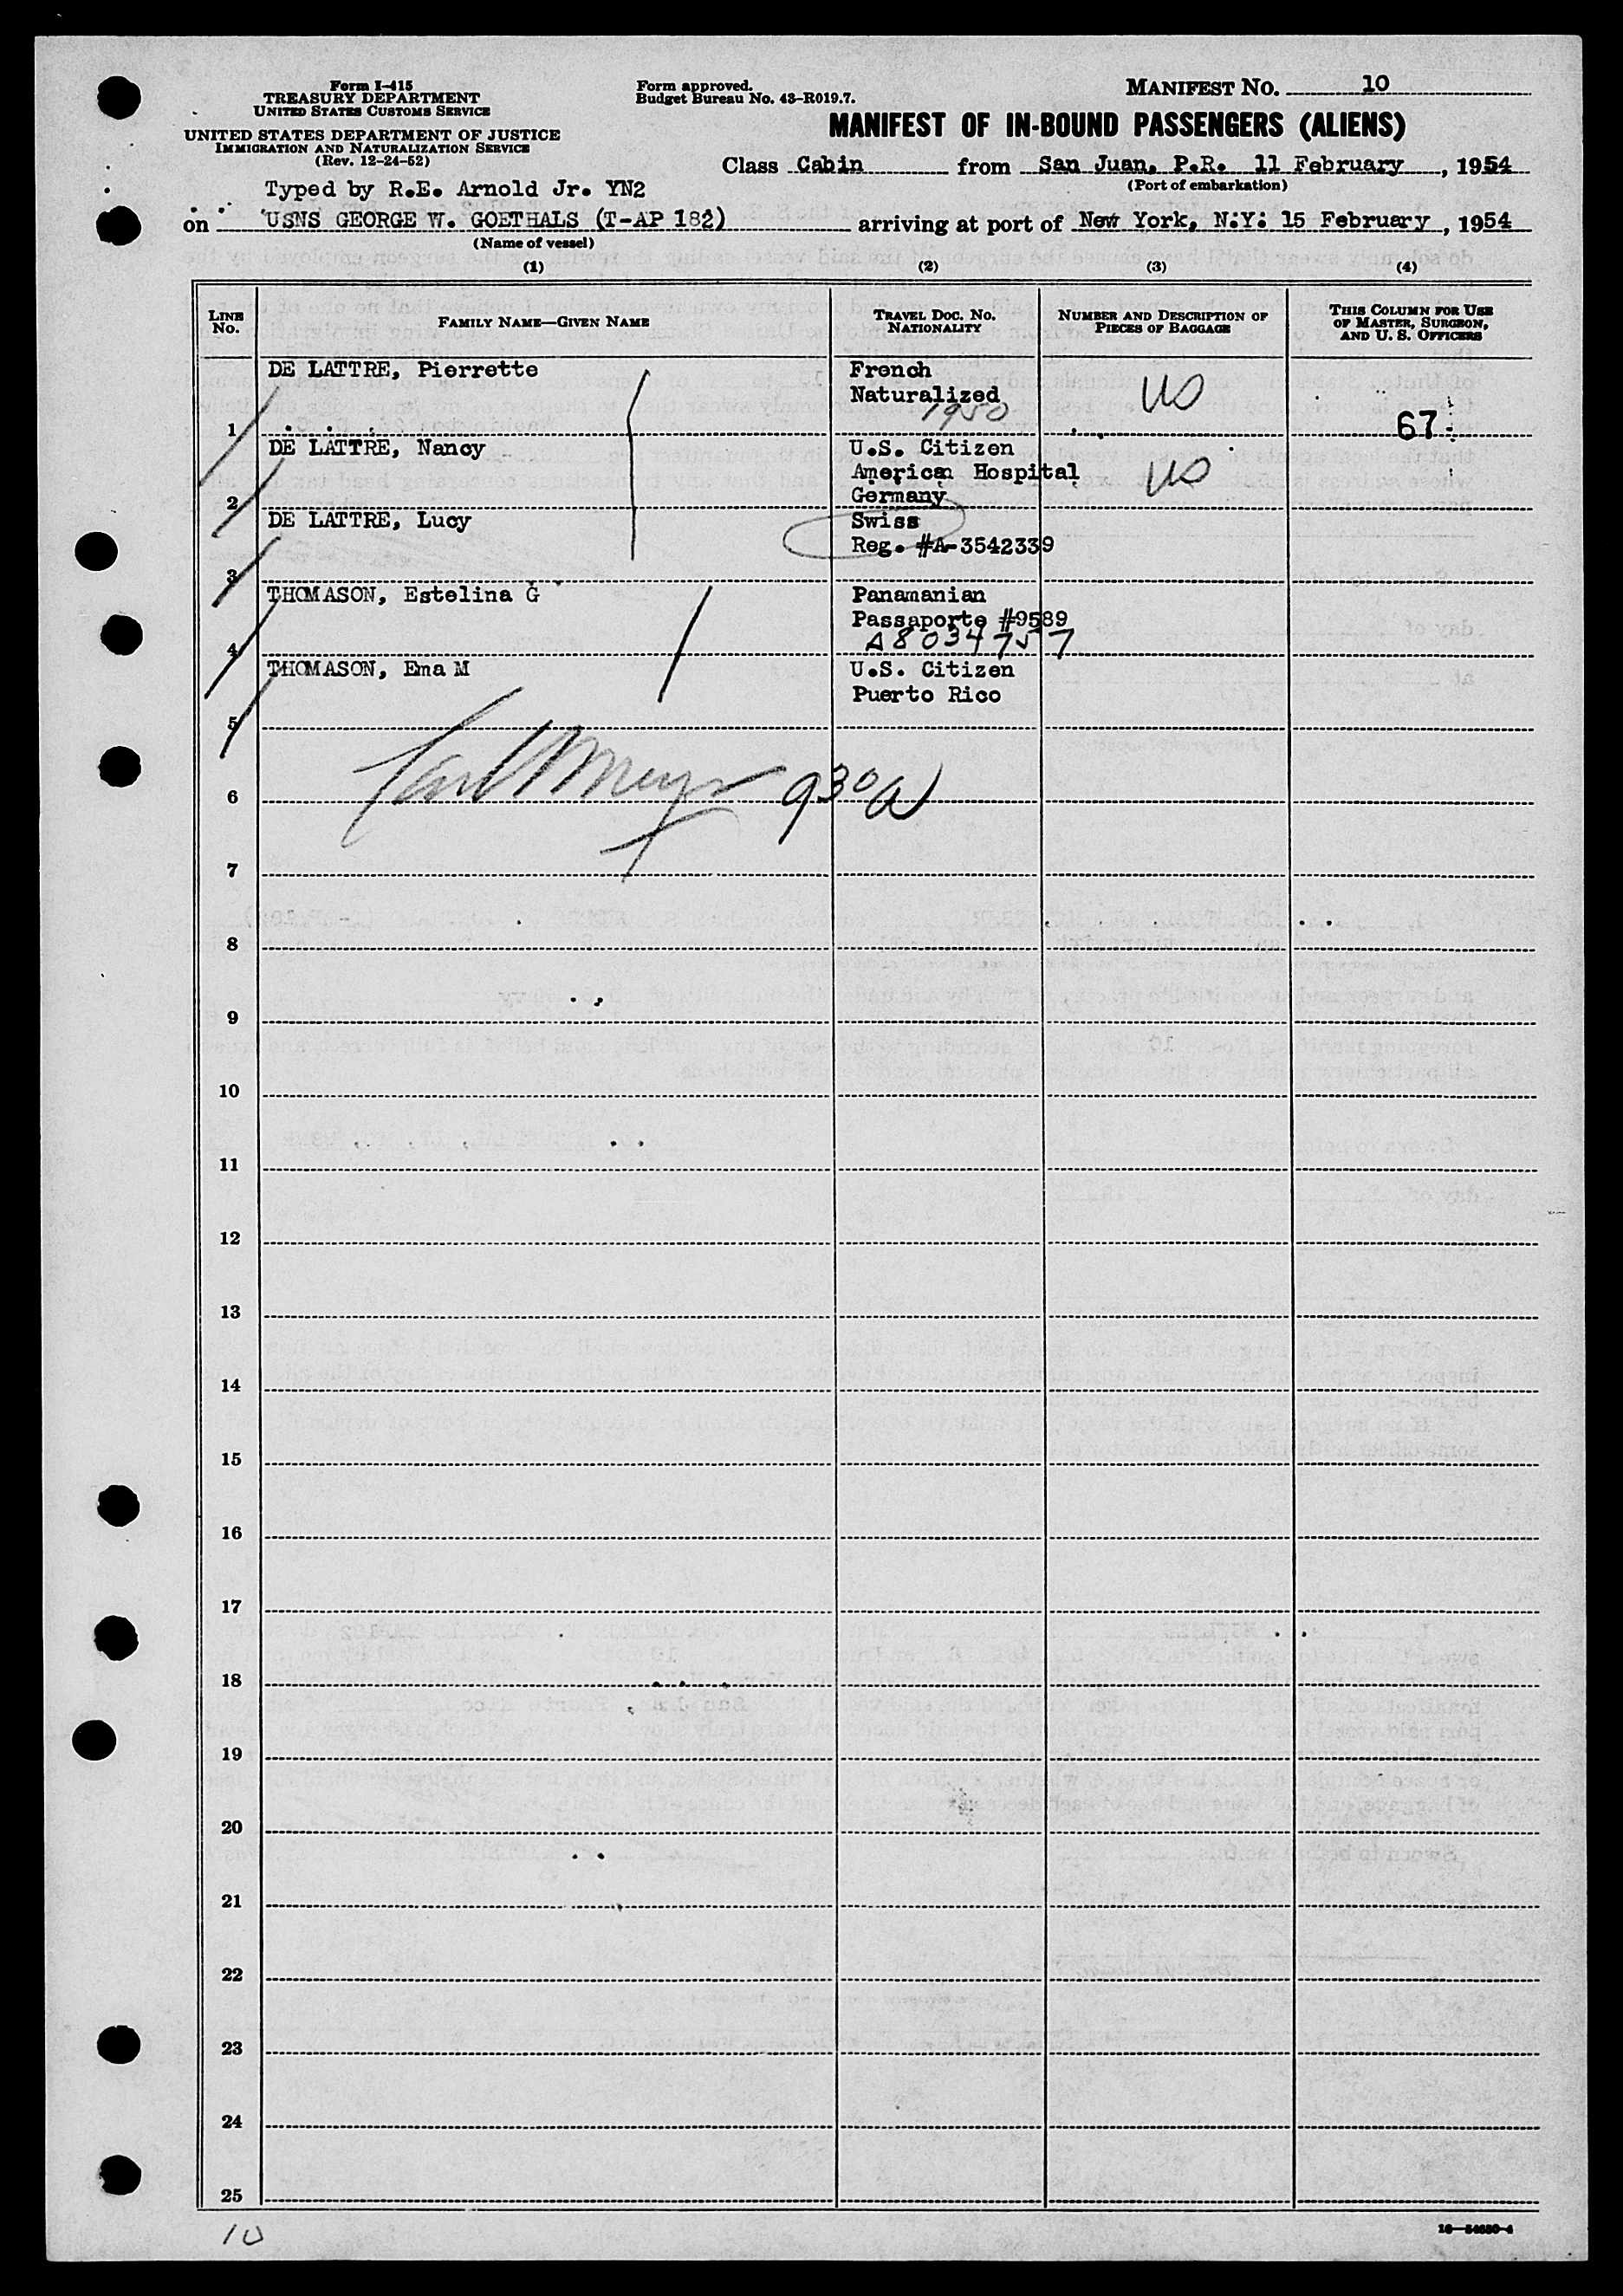 Form I-415
TREASURY DEPARTMENT
UNITED STATES CUSTOMS SERVICE
UNITED STATES DEPARTMENT OF JUSTICE
IMMIGRATION AND NATURALIZATION SERVICE
(Rev. 12-24-52)
Form approved.
Budget Bureau No. 43-R019.7.
MANIFEST NO. 10
MANIFEST OF IN-BOUND PASSENGERS (ALIENS)
Class Cabin from San Juan, P.R. 11 February, 1954
(Port of embarkation)
Typed by R.E. Arnold Jr. YN2
on USNS GEORGE W. GOETHALS (T-AP 182) arriving at port of New York, N.Y. 15 February, 1954
(Name of vessel)
(1) (2) (3) (4)
LINE No. FAMILY NAME—GIVEN NAME TRAVEL DOC. NO. NATIONALITY NUMBER AND DESCRIPTION OF PIECES OF BAGGAGE THIS COLUMN FOR USE OF MASTER, SURGEON, AND U. S. OFFICERS
DE LATTRE, Pierrette French
Naturalized US
1950
1 67
DE LATTRE, Nancy U.S. Citizen
American Hospital US
2 Germany
DE LATTRE, Lucy Swiss
Reg. #A-3542339
3
THOMASON, Estelina G Panamanian
Passaporte #9589
4 A8034757
THOMASON, Ema M U.S. Citizen
Puerto Rico
5
6 930a
7
8
9
10
11
12
13
14
15
16
17
18
19
20
21
22
23
24
25
10